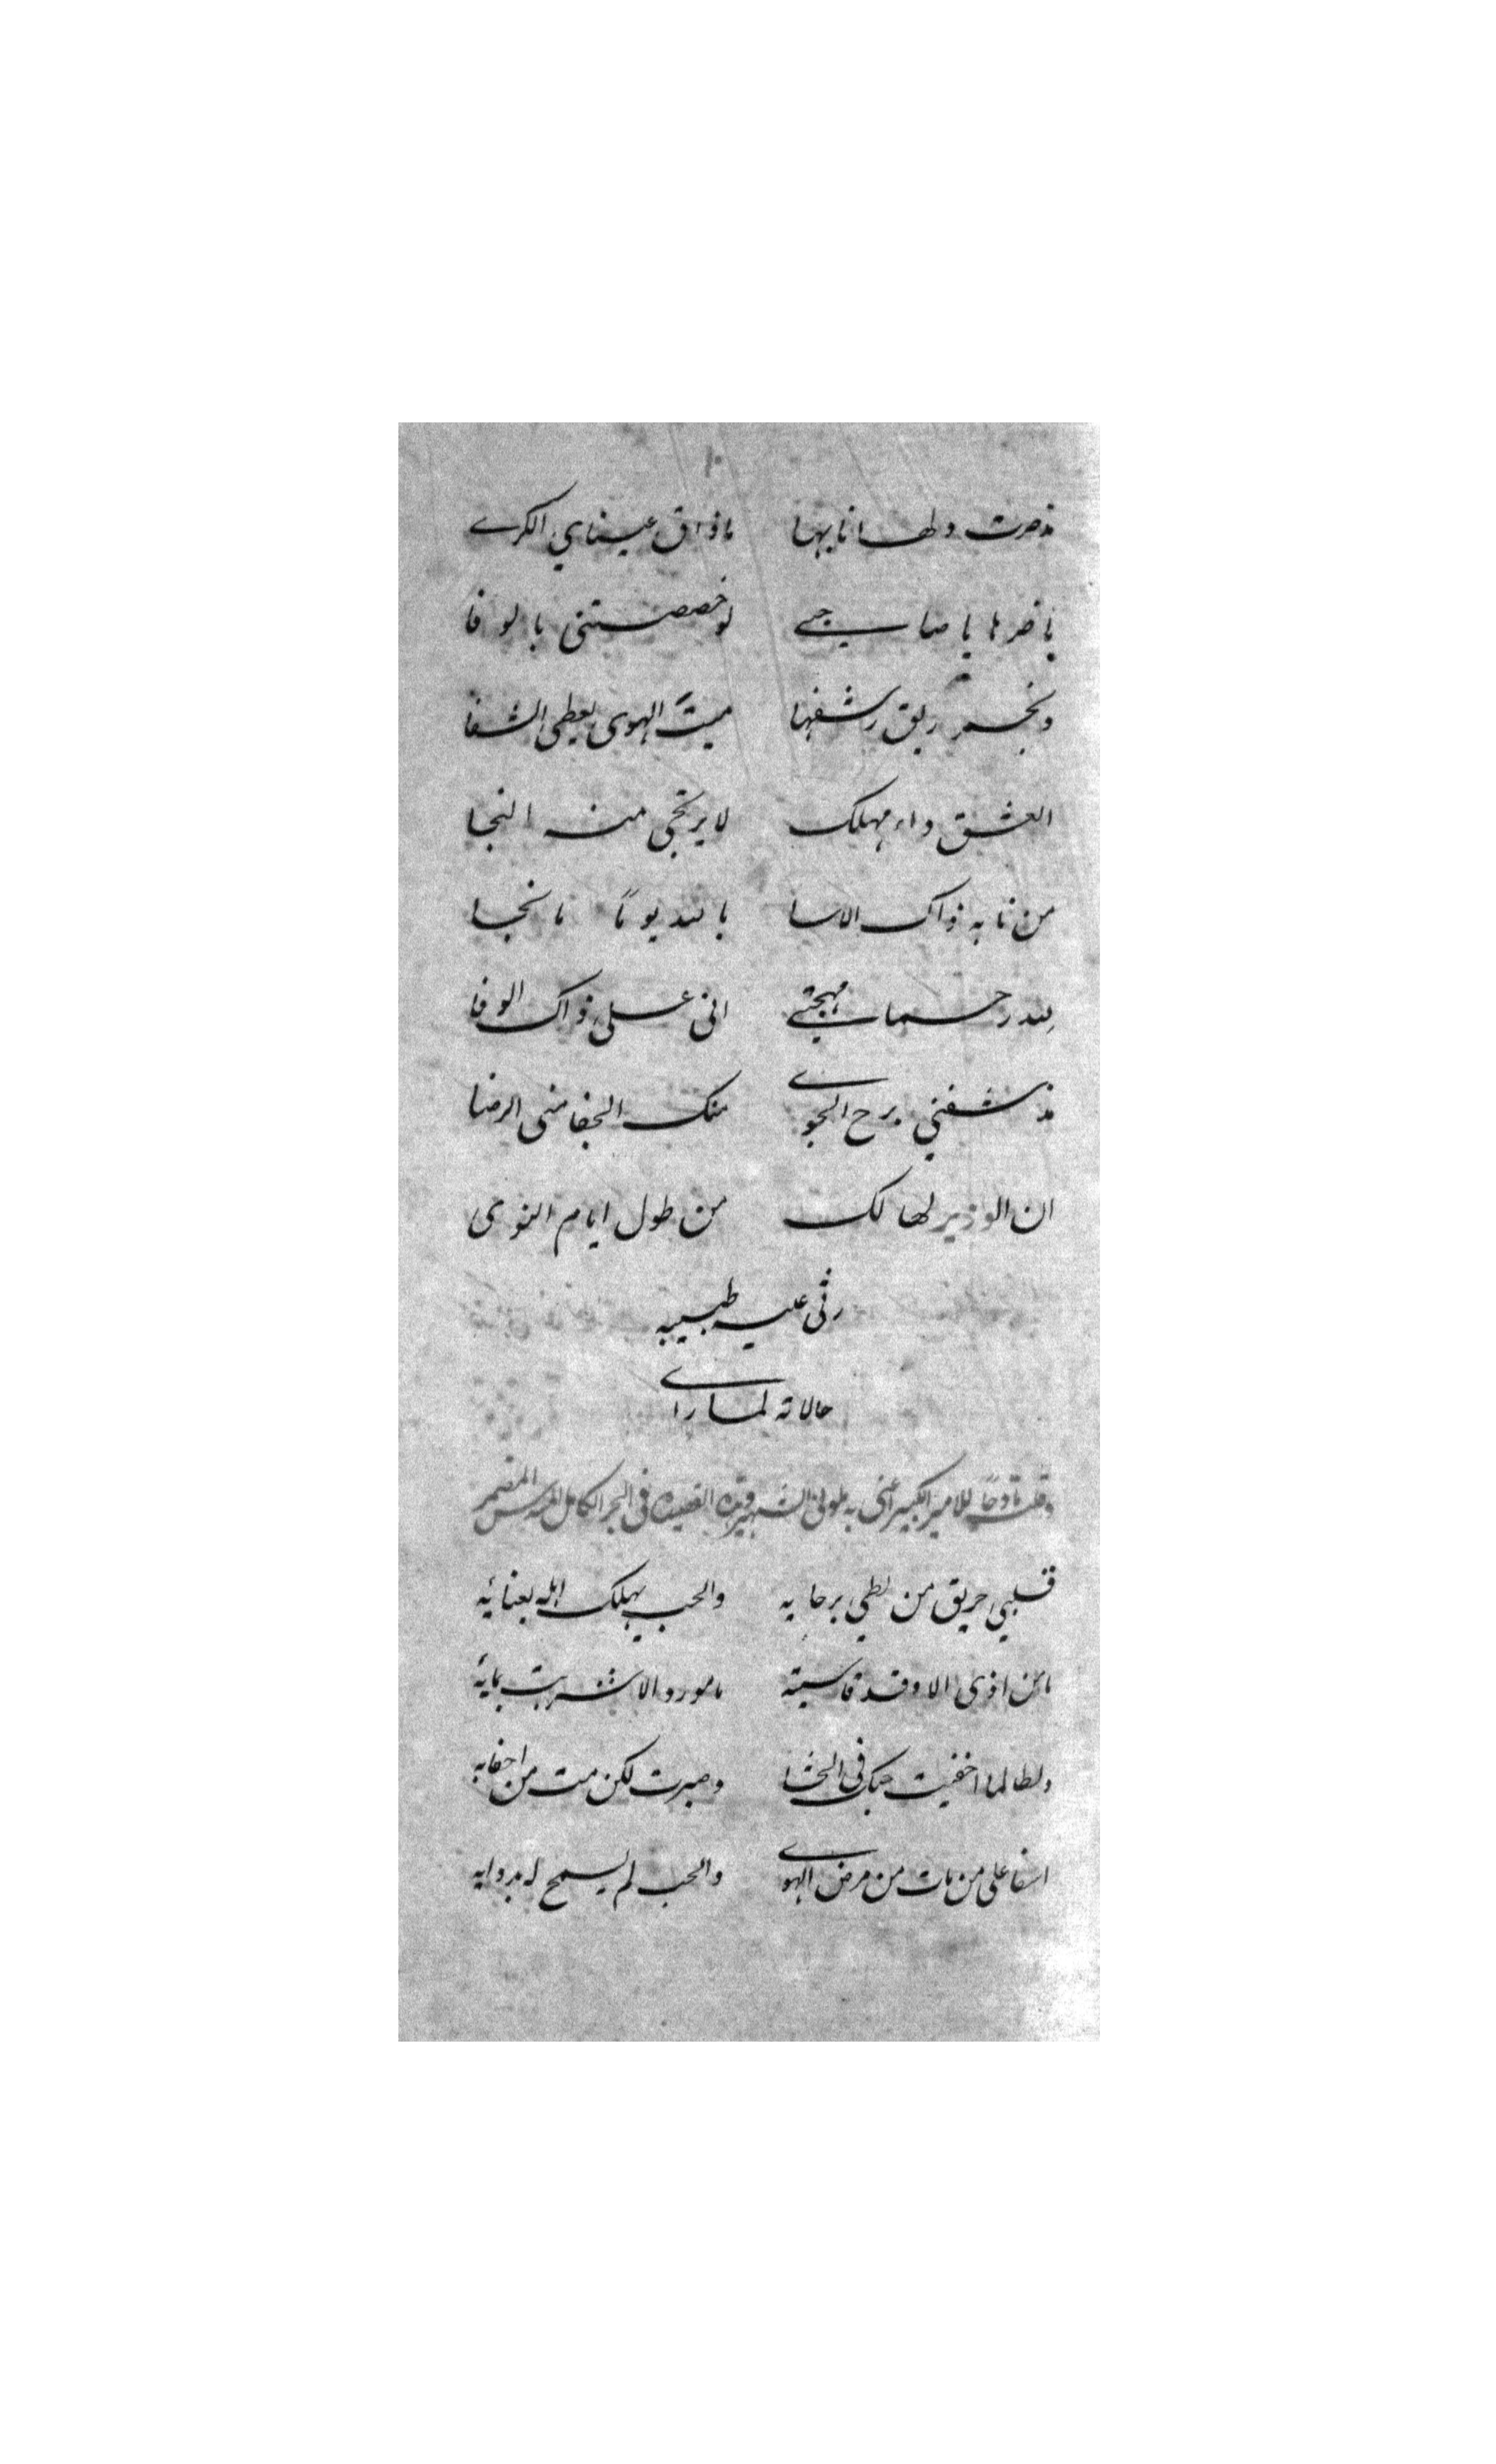 ١٠
مذصرت ولهانا بها ماذاق عيناي الكرے
ياضرها يا صاحبے لوخصصتني بالوفا
وبخمر ريق رشفها ميتً الهوى يعطى الشفا
العشق داء مهلك لايرتجى منه النجا
من نابه ذاك الاسا بالله يوماً مانجا
لله رحما مهجتے انى على ذاك الوفا
مذ شفني برح الجوے منك الجفا منى الرضا
ان الوزير لهالك من طول ايام النوى
رثى عليه طبيبه
حالاته لما راے
وقلت مادحاً للامير الكبير اعنى به الشهير وهذه القصيده فى البحر الكامل المسدس المضمر
قلبي حريق من لظي برحايه والحب يهلك اهله بعنائه
مامن اذى الا وقد قاسيته مامورد الا شربت بمائه
ولطالما اخفيت حبك فى الحشا وصبرت لكن مت من اخفايه
اسفا على من مات من مرض الهوے والحب لم يسمح له بدوايه